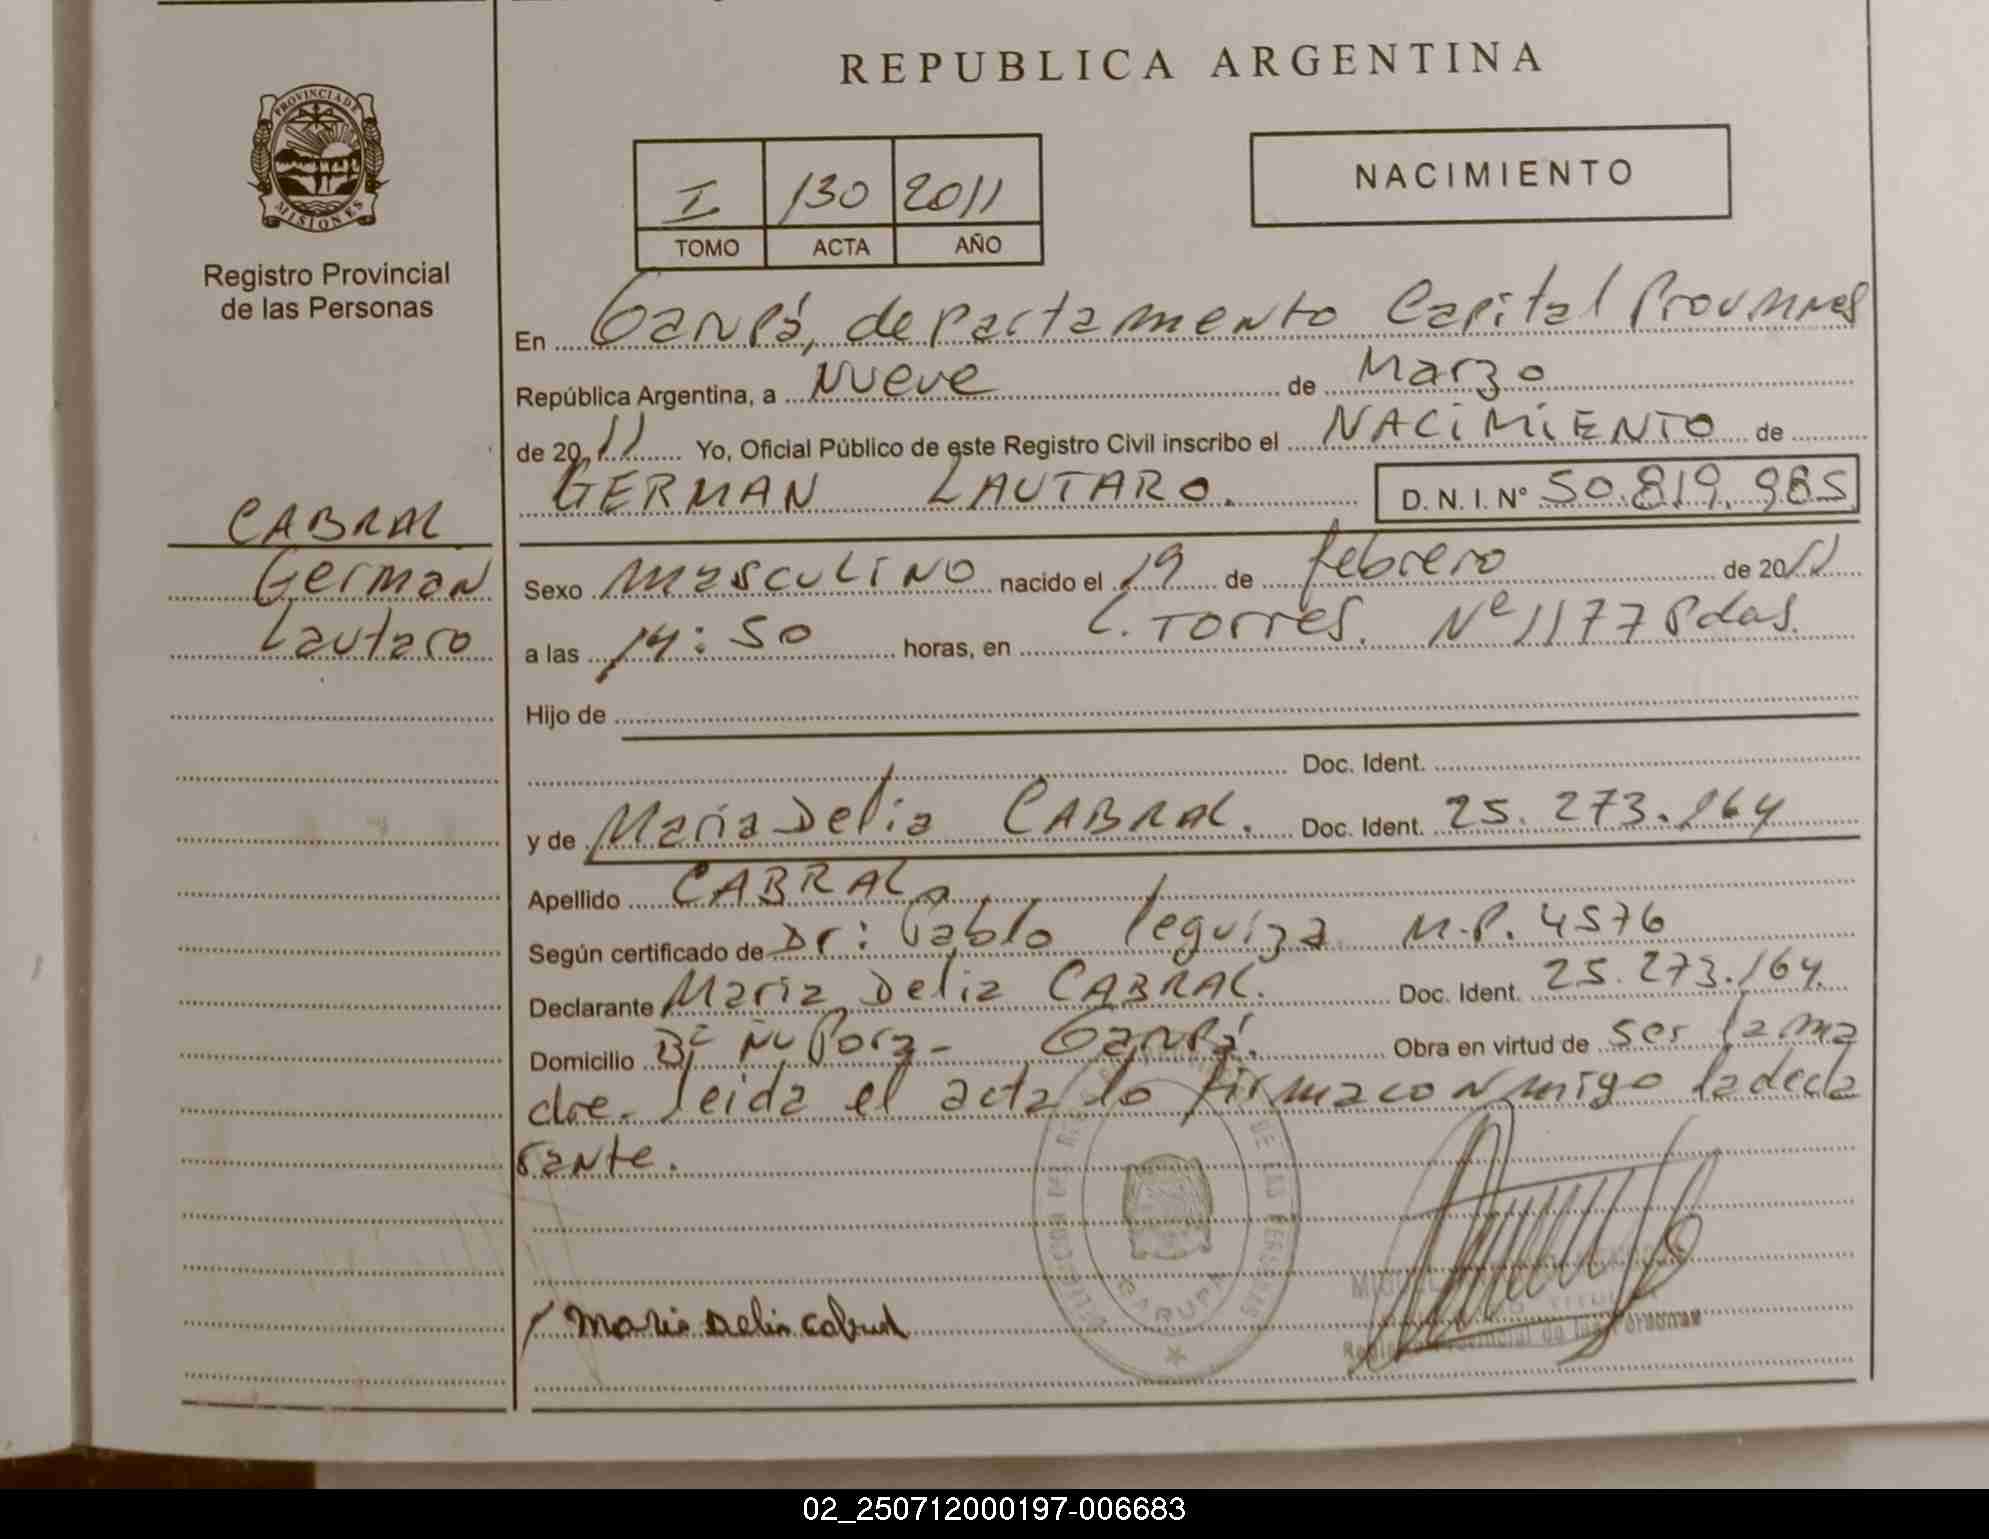 REPUBLICA ARGENTINA
PROVINCIA DE
MISIONES
Registro Provincial
de las Personas
I 130 2011
TOMO ACTA AÑO
NACIMIENTO
En Garupá, departamento Capital
República Argentina, a Nueve de Marzo
de 2011 Yo, Oficial Público de este Registro Civil inscribo el NACIMIENTO de
GERMAN LAUTARO. D. N. I. Nº 50.819.985
CABRAL
German
Lautaro
Sexo Masculino nacido el 19 de febrero de 2011
a las 14:50 horas, en L. Torres. Nº 1177 Pdas.
Hijo de
Doc. Ident.
y de Maria Delia CABRAL. Doc. Ident. 25.273.164
Apellido CABRAL
Según certificado de Dr: Pablo Leguiza M.P. 4576
Declarante Maria Delia CABRAL. Doc. Ident. 25.273.164.
Domicilio Bº Ñu Porá - Garupá. Obra en virtud de ser la ma
dre. leida el acta la firma conmigo la decla
rante.
DE LAS PERSONAS
GARUPA
Maria Delia Cabral
02_250712000197-006683